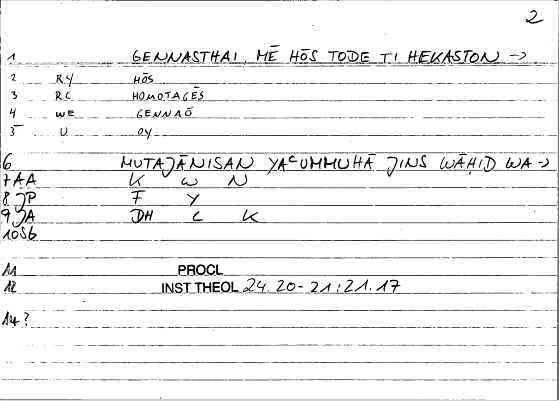 2
1 GENNASTHAI, MĒ HŌS TODE TI HEKASTON ->
2 RY HŌS
3 RC HOMOTAGĒS
4 WE GENNAŌ
5 U OY
6 MUTAJĀNISAN YAᶜUMMUHĀ JINS WĀḤID WA ->
7 AA K W N
8 JP F Y
9 JA DH L K
10 SG
11 PROCL
12 INST THEOL 24.20-21:21.17
14?